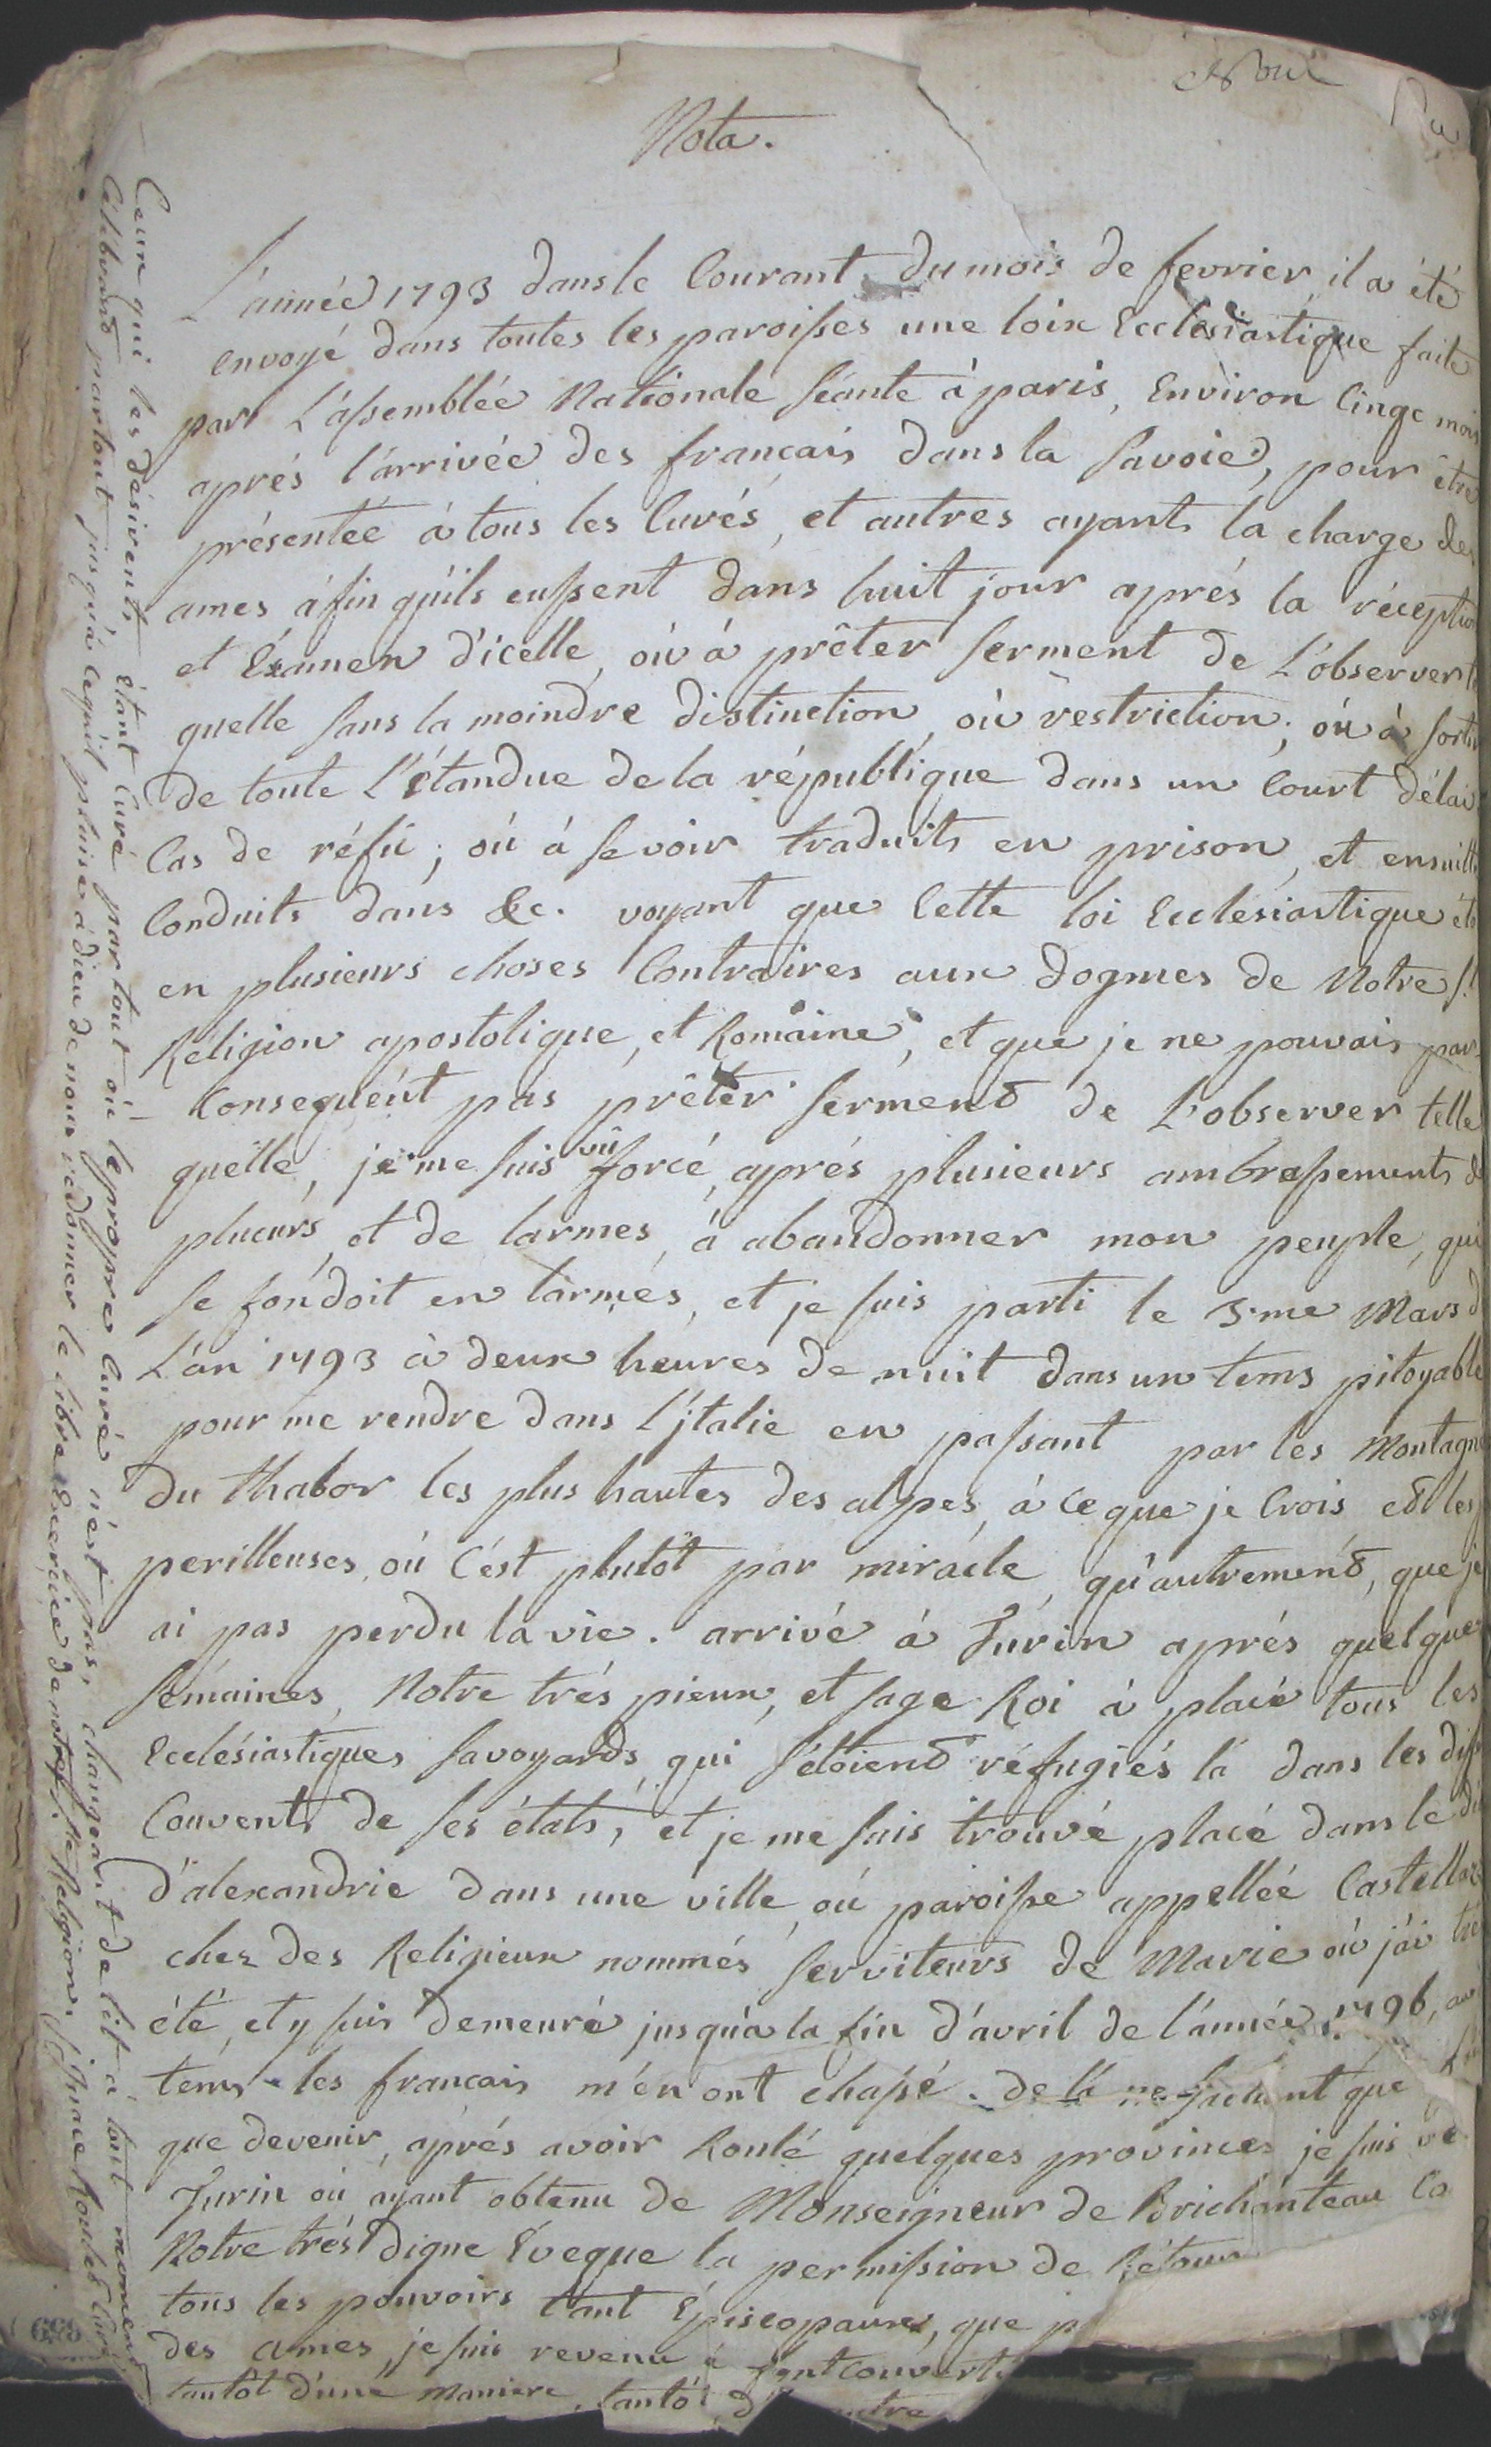 Nota.
L'année 1793 dans le Courant du mois de fevrier il a été
envoyé dans toutes les paroisses une loix Ecclésiastique faite
par L'assemblée Nationale séante à paris, Environ Cinqe mois
aprés l'arrivée des francais dans la Savoie, pour être
présentée à tous les Curés, et autres ayants la charge des
ames àfin qu'ils eussent dans huit jour aprés la réception
et Examen d'icelle, où à prêter serment de L'observer te
quelle sans la moindre distinction, où réstriction; où à sortir
de toute L'étandue de la république dans un Court délai
Cas de réfu; où à se voir traduits en prison, et ensuitte
Conduits dans &c. voyant que Cette loi Ecclésiastique ét
en plusieurs choses Contraires aux dogmes de Notre St
Réligion apostolique, et Romaine, et que je ne pouvais par
Consequént pas prêter serment de L'observer telle
quélle, je me suis vû forcé, aprés plusieurs ambrassements de
plueurs, et de larmes, à abandonner mon peuple, qui
se fondoit en larmes, et je suis parti le 3.me Mars d
L'an 1793 à deux heures de nuit dans un tems pitoyable
pour me rendre dans L'jtalie en passant par les Montagnes
du thabor les plus hautes des alpes, à ce que je Crois et les
perilleuses, où C'ést plutôt par miracle, qu'autrement, que je
ai pas perdu la vie. arrivé à Turin aprés quelque
sémaines, Notre trés pieux, et sage Roi à placé tous les
Ecclésiastiques Savoyards, qui s'étoient réfugiés là dans les diff
Couvents de ses états, et je me suis trouvé placé dans le di
d'alexandrie dans une ville, où paroisse appellée Castellaz
chez des Réligieux nommés serviteurs de Marie où j'ai tré
été, et y suis demeuré jusqu'à la fin d'avril de l'année 1796, au
tems les francais m'en ont chassé. de là ne sachant que
que devenir, aprés avoir Roulé quelques provinces je suis ve
Turin où ayant obtenu de Monseigneur de Brichanteau Co
Notre trés digne Évêque la permission de Rétour
tous les pouvoirs tant Épiscopaux, que p
des ames, je suis revenu à font couvert
tantôt d'une maniere, tantôt d' autre
Ceux qui les désirent, étant Curé par tout où le propre Curé n'ést pas, changeant de lit à tout moment
Célébrant partout jusqu'à Ce qu'il plaise à dieu de nous redonner le libre Exercice de notre Ste Religion.